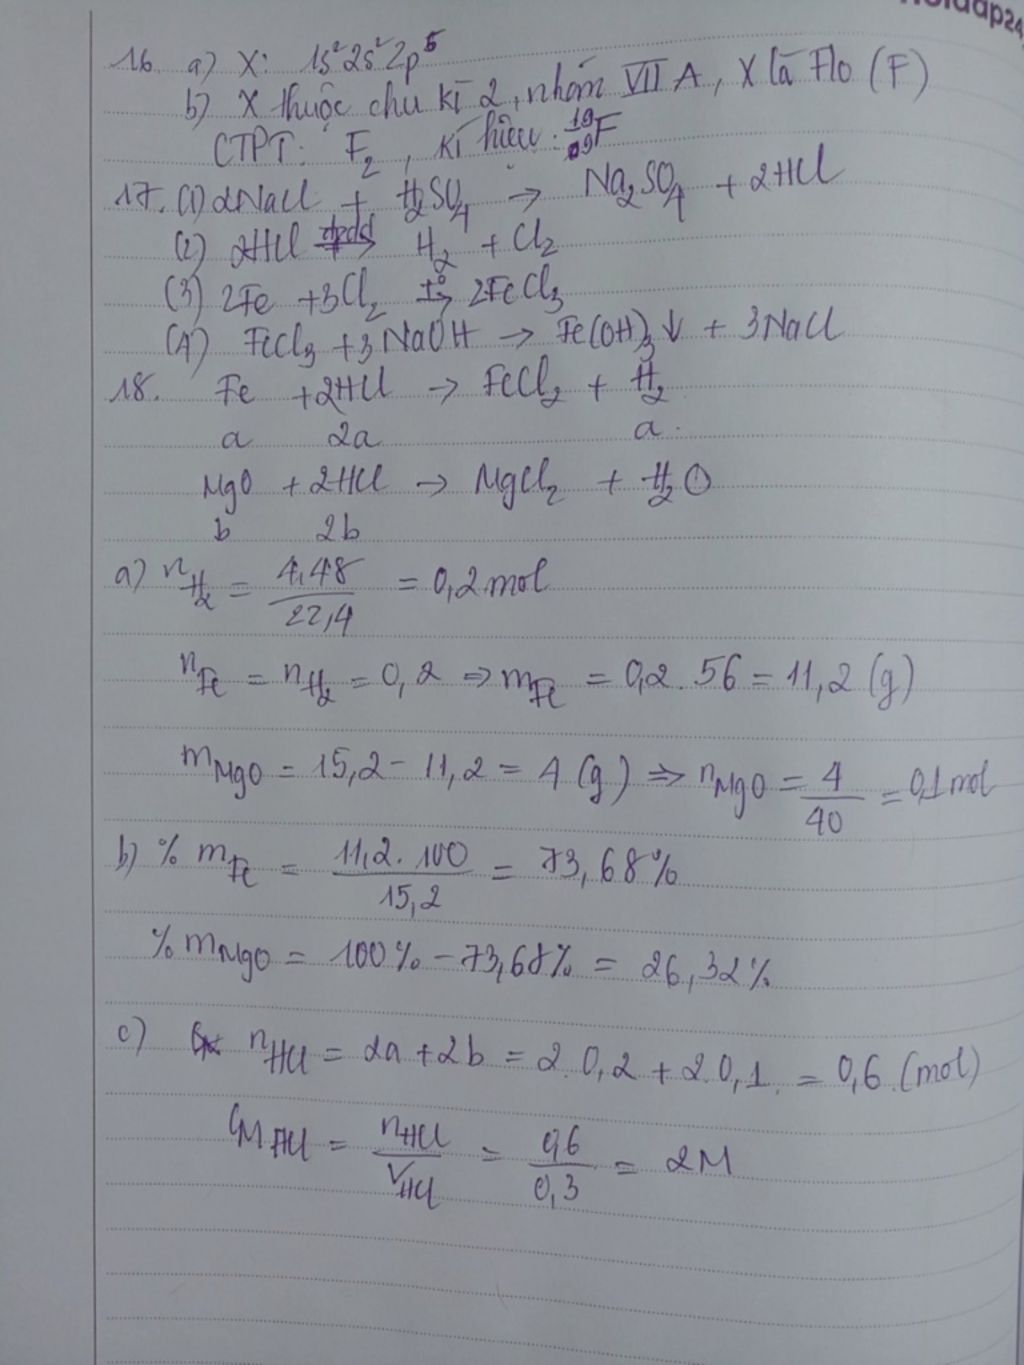 Hoidap24
16. a) X: 1s²2s²2p⁵
b) X thuộc chu kì 2, nhóm VII A, X là Flo (F)
CTPT: F₂, kí hiệu: ¹⁹₀₉F
17. (1) 2NaCl + H₂SO₄ → Na₂SO₄ + 2HCl
(2) 2HCl đpdd→ H₂ + Cl₂
(3) 2Fe + 3Cl₂ t°→ 2FeCl₃
(4) FeCl₃ + 3NaOH → Fe(OH)₃↓ + 3NaCl
18. Fe + 2HCl → FeCl₂ + H₂
a 2a a.
MgO + 2HCl → MgCl₂ + H₂O
b 2b
a) n H₂ = 4,48/22,4 = 0,2 mol
n Fe = n H₂ = 0,2 => m Fe = 0,2.56 = 11,2 (g)
m MgO = 15,2 - 11,2 = 4 (g) => n MgO = 4/40 = 0,1 mol
b) % m Fe = 11,2.100/15,2 = 73,68%
% m MgO = 100% - 73,68% = 26,32%
c) n HCl = 2a + 2b = 2.0,2 + 2.0,1 = 0,6 (mol)
CM HCl = n HCl/V HCl = 0,6/0,3 = 2M